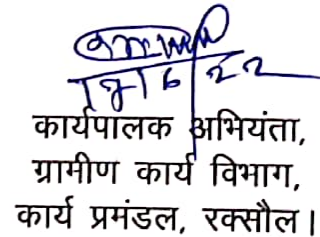 कार्यपालक अभियंता,
ग्रामीण कार्य विभाग,
कार्य प्रमंडल, रक्सौल।